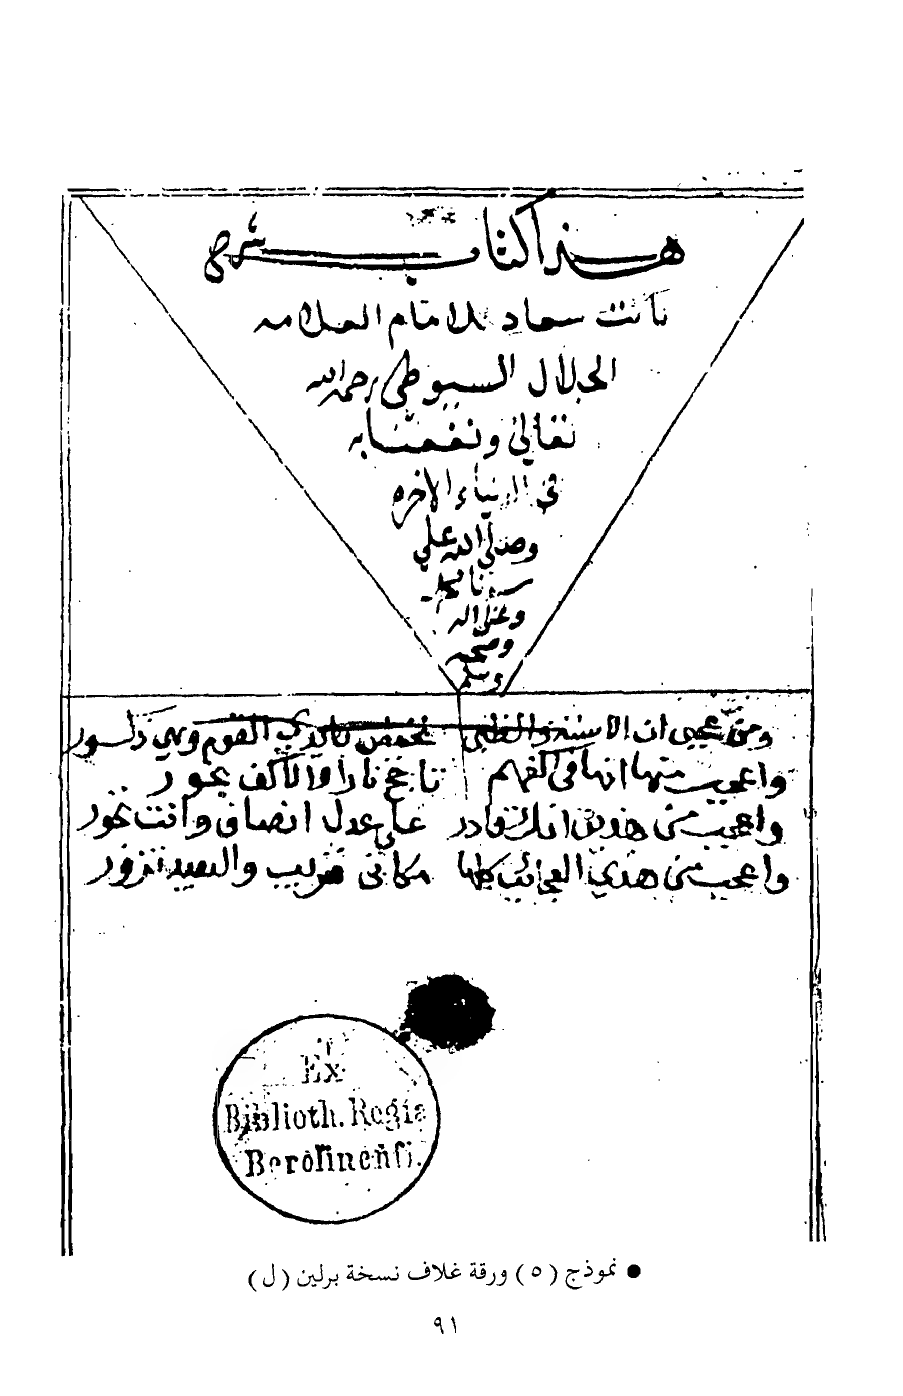 هذا كتاب شرح
بانت سعاد للامام العلامه
الجلال السيوطي رحمه الله
تعالى ونفعنا به
في الدنياء الاخره
وصلى الله على
سيدنا محمد
وعلى اله
وصحبه
وسلم
ومن عجبي ان الاسنة والظبى تحيض بايدي القوم وهي ذكور
واعجب منها انها في اكفهم تاجج نارا والاكف بحور
واعجب من هذين انك قادر على عدل انصاف وانت تجور
واعجب من هذي العجائب كلها مكاني قريب والبعيد تزور
Ex
Biblioth. Regia
Berolinenſi.
● نموذج (٥) ورقة غلاف نسخة برلين (ل)
٩١